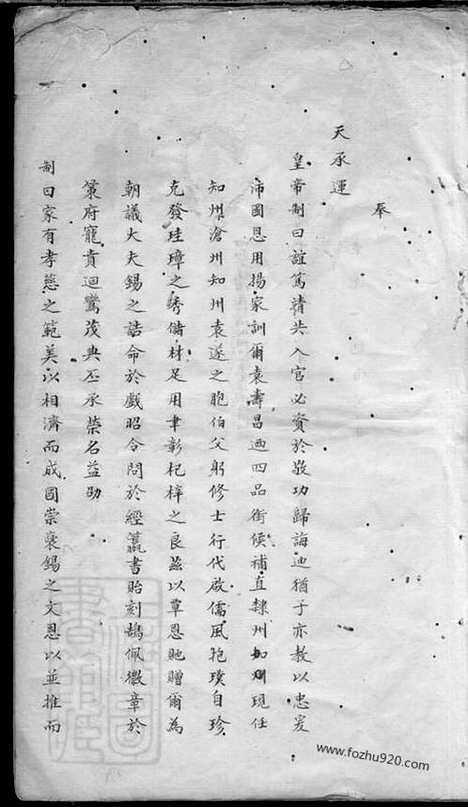 奉
天承運
皇帝制曰誼篤靖共入官必資於敬功歸誨迪猶子亦教以忠爰
沛國恩用揚家訓爾袁壽昌迺四品銜候補直隸州知州現任
知州滄州知州袁遂之胞伯父躬修士行代啟儒風抱璞自珍
克發珪璋之秀儲材足用聿彰杞梓之良茲以覃恩貤贈爾為
朝議大夫錫之誥命於戲昭令問於經籯書貽刻鵠佩徽章於
策府寵賁迴鸞茂典丕承榮名益劭
制曰家有孝慈之範美以相濟而成國崇褒錫之文恩以並推而
www.fozhu920.com